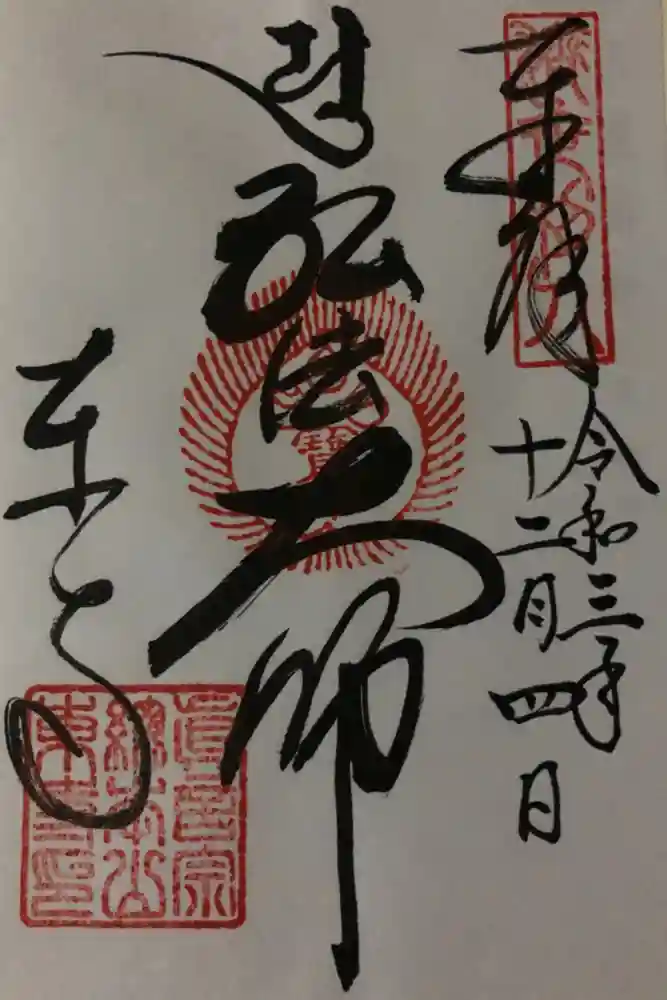 奉拝
令和三年
十二月四日
弘法大師
東寺
真言宗
総本山
東寺印